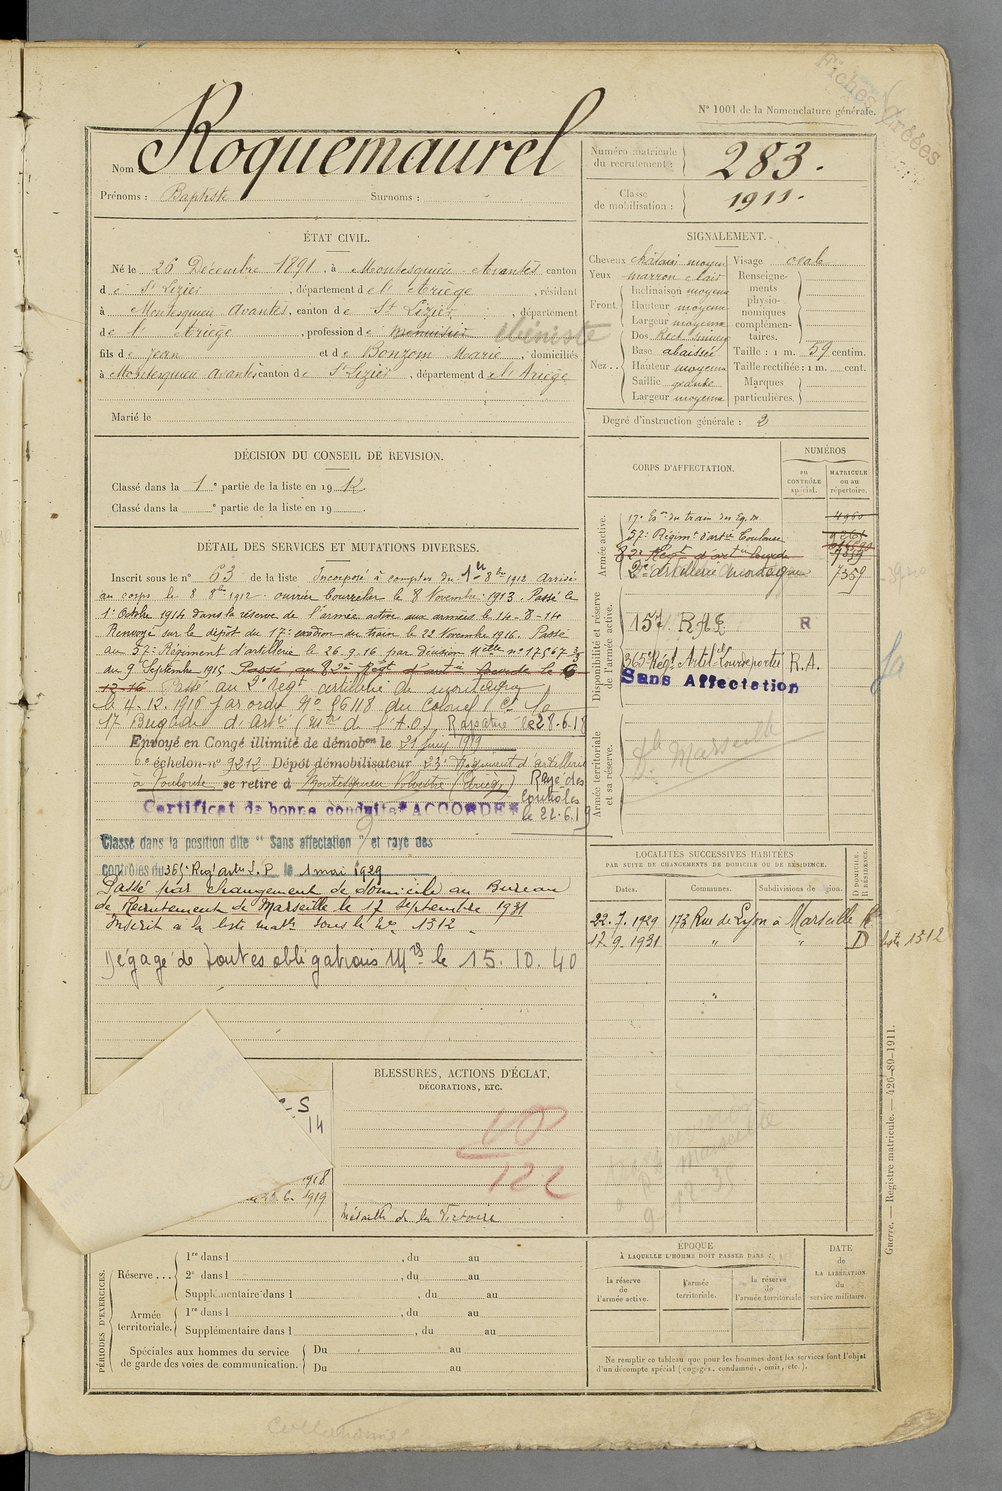 Fiches Créées
N° 1001 de la Nomenclature générale.
Nom Roquemaurel
Prénoms : Baptiste Surnoms :
Numéro matricule du recrutement : 283.
Classe de mobilisation : 1911.
ÉTAT CIVIL.
Né le 26 Décembre 1891, à Montesquieu Avantès canton
de St Lizier, département de l'Ariège, résidant
à Montesquieu Avantès, canton de St Lizier, département
de l'Ariège, profession de menuisier ébéniste
fils de Jean et de Bonzom Marie, domiciliés
à Montesquieu Avantès canton de St Lizier, département de l'Ariège
Marié le
SIGNALEMENT.
Cheveux châtain moyen Visage ovale
Yeux marron clair Renseignements physionomiques complémentaires.
Front. Inclinaison moyenne
Hauteur moyenne
Largeur moyenne
Nez. Dos Rect. sinueux
Base abaissée Taille : 1 m. 59 centim.
Hauteur moyenne Taille rectifiée : 1 m. cent.
Saillie grande Marques
Largeur moyenne particulières.
Degré d'instruction générale : 2
DÉCISION DU CONSEIL DE REVISION.
Classé dans la 1e partie de la liste en 1912.
Classé dans la e partie de la liste en 19 .
CORPS D'AFFECTATION.
NUMÉROS
au CONTRÔLE spécial.
MATRICULE ou au répertoire.
Armée active.
17e Eson du train des Eq. M. 4960
57e Régimt d'artie Toulouse
82e Régt d'artie lourde
2e d'artillerie montagne 7359
Disponibilité et réserve de l'armée active.
157 RAP R
365e Régt Artieie Lourde portée R.A.
Sans Affectation
Armée territoriale et sa réserve.
Marseille
DÉTAIL DES SERVICES ET MUTATIONS DIVERSES.
Inscrit sous le n° 63 de la liste Incorporé à compter du 1er 8bre 1912 Arrivé
au corps le 8 8bre 1912 ouvrier bourrelier le 8 Novembre 1913. Passé le
1er Octobre 1914 dans la réserve de l'armée active aux armées le 14-8-14
Renvoyé sur le dépôt du 17e escadron du train le 22 Novembre 1916. Passé
au 57e Régiment d'artillerie le 26.9.16 par décision Mlle n° 17567 3/5
du 9 Septembre 1915 Passé au 82e Régt d'artie lourde le 6
12-16 Passé au 2e Régt artillerie de montagne
le 4.12.1916 par ordre N° 26118 du Colonel Ct la
17 Brigade d'Artie Rapatrié le 28-6-18
Envoyé en Congé illimité de démobon le 21 Juin 1919
6e échelon n° 9212 Dépôt démobilisateur 23e Régiment d'artillerie
à Toulouse se retire à Montesquieu Volvestre (Ariège)
Rayé des controles le 22.6.19
Certificat de bonne conduite "ACCORDÉ"
Classé dans la position dite "Sans affectation" et rayé des
contrôles du 365e Régt artie L.P le 1 mai 1929
Passé par changement de domicile au Bureau
de Recrutement de Marseille le 17 septembre 1931
Inscrit à la liste matle sous le No 1512
Dégagé de toutes obligations Mres le 15.10.40
LOCALITÉS SUCCESSIVES HABITÉES
PAR SUITE DE CHANGEMENTS DE DOMICILE OU DE RÉSIDENCE.
Dates. Communes. Subdivisions de région. D DOMICILE. R RÉSIDENCE.
22.7.1929 173 Rue de Lyon à Marseille R.
17.9.1931 " " D liste 1512
BLESSURES, ACTIONS D'ÉCLAT,
DÉCORATIONS, ETC.
122
Médaille de la Victoire
1918
1919
Guerre. — Registre matricule. — 426-89-1911.
PÉRIODES D'EXERCICES.
Réserve... 1re dans l , du au
2e dans l , du au
Supplémentaire dans l , du au
Armée territoriale. 1re dans l , du au
Supplémentaire dans l , du au
Spéciales aux hommes du service Du au
de garde des voies de communication. Du au
ÉPOQUE
À LAQUELLE L'HOMME DOIT PASSER DANS :
la réserve de l'armée active.
l'armée territoriale.
la réserve de l'armée territoriale
DATE de LA LIBÉRATION du service militaire.
Ne remplir ce tableau que pour les hommes dont les services font l'objet
d'un décompte spécial (engagés, condamnés, omis, etc.).
Collationné